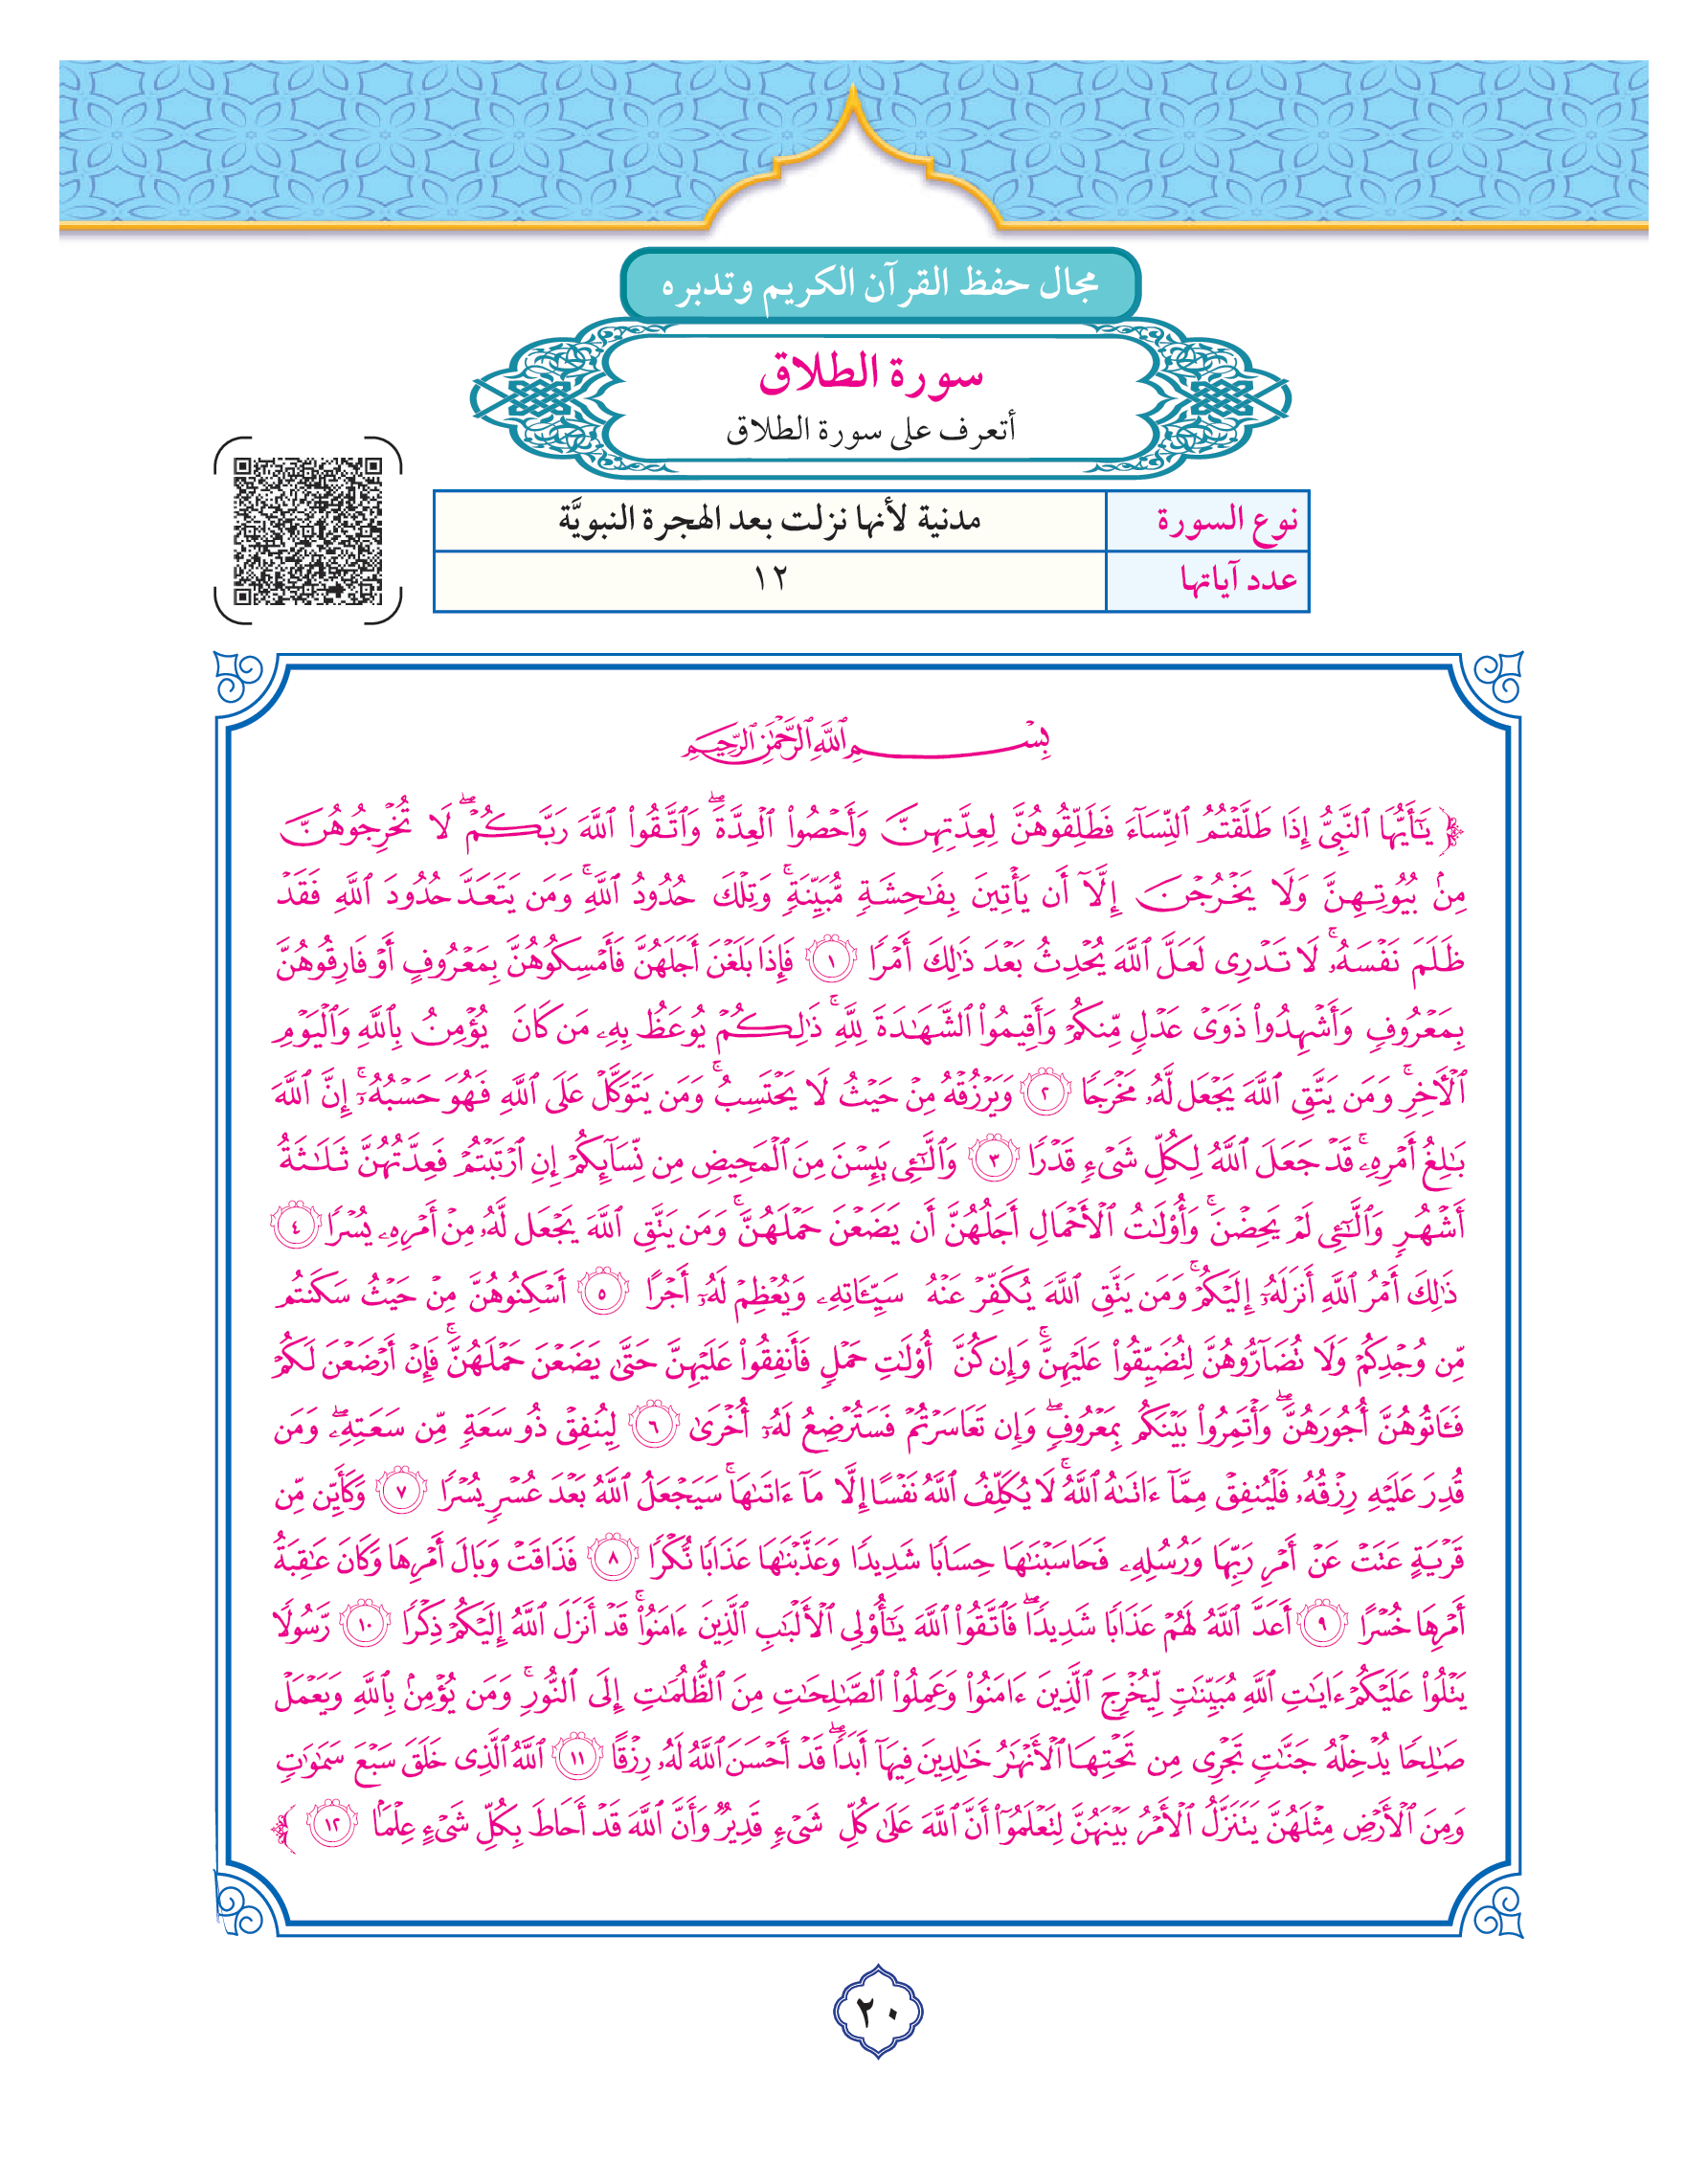 مجال حفظ القرآن الكريم وتدبره
سورة الطلاق
أتعرف على سورة الطلاق
نوع السورة	مدنية لأنها نزلت بعد الهجرة النبويَّة
عدد آياتها	١٢
بِسْمِ ٱللَّهِ ٱلرَّحْمَٰنِ ٱلرَّحِيمِ
﴿ يَٰٓأَيُّهَا ٱلنَّبِىُّ إِذَا طَلَّقْتُمُ ٱلنِّسَآءَ فَطَلِّقُوهُنَّ لِعِدَّتِهِنَّ وَأَحْصُوا۟ ٱلْعِدَّةَ ۖ وَٱتَّقُوا۟ ٱللَّهَ رَبَّكُمْ ۖ لَا تُخْرِجُوهُنَّ
مِنۢ بُيُوتِهِنَّ وَلَا يَخْرُجْنَ إِلَّآ أَن يَأْتِينَ بِفَٰحِشَةٍ مُّبَيِّنَةٍ ۚ وَتِلْكَ حُدُودُ ٱللَّهِ ۚ وَمَن يَتَعَدَّ حُدُودَ ٱللَّهِ فَقَدْ
ظَلَمَ نَفْسَهُۥ ۚ لَا تَدْرِى لَعَلَّ ٱللَّهَ يُحْدِثُ بَعْدَ ذَٰلِكَ أَمْرًا ١ فَإِذَا بَلَغْنَ أَجَلَهُنَّ فَأَمْسِكُوهُنَّ بِمَعْرُوفٍ أَوْ فَارِقُوهُنَّ
بِمَعْرُوفٍ وَأَشْهِدُوا۟ ذَوَىْ عَدْلٍ مِّنكُمْ وَأَقِيمُوا۟ ٱلشَّهَٰدَةَ لِلَّهِ ۚ ذَٰلِكُمْ يُوعَظُ بِهِۦ مَن كَانَ يُؤْمِنُ بِٱللَّهِ وَٱلْيَوْمِ
ٱلْءَاخِرِ ۚ وَمَن يَتَّقِ ٱللَّهَ يَجْعَل لَّهُۥ مَخْرَجًا ٢ وَيَرْزُقْهُ مِنْ حَيْثُ لَا يَحْتَسِبُ ۚ وَمَن يَتَوَكَّلْ عَلَى ٱللَّهِ فَهُوَ حَسْبُهُۥٓ ۚ إِنَّ ٱللَّهَ
بَٰلِغُ أَمْرِهِۦ ۚ قَدْ جَعَلَ ٱللَّهُ لِكُلِّ شَىْءٍ قَدْرًا ٣ وَٱلَّٰٓـِٔى يَئِسْنَ مِنَ ٱلْمَحِيضِ مِن نِّسَآئِكُمْ إِنِ ٱرْتَبْتُمْ فَعِدَّتُهُنَّ ثَلَٰثَةُ
أَشْهُرٍ وَٱلَّٰٓـِٔى لَمْ يَحِضْنَ ۚ وَأُو۟لَٰتُ ٱلْأَحْمَالِ أَجَلُهُنَّ أَن يَضَعْنَ حَمْلَهُنَّ ۚ وَمَن يَتَّقِ ٱللَّهَ يَجْعَل لَّهُۥ مِنْ أَمْرِهِۦ يُسْرًا ٤
ذَٰلِكَ أَمْرُ ٱللَّهِ أَنزَلَهُۥٓ إِلَيْكُمْ ۚ وَمَن يَتَّقِ ٱللَّهَ يُكَفِّرْ عَنْهُ سَيِّـَٔاتِهِۦ وَيُعْظِمْ لَهُۥٓ أَجْرًا ٥ أَسْكِنُوهُنَّ مِنْ حَيْثُ سَكَنتُم
مِّن وُجْدِكُمْ وَلَا تُضَآرُّوهُنَّ لِتُضَيِّقُوا۟ عَلَيْهِنَّ ۚ وَإِن كُنَّ أُو۟لَٰتِ حَمْلٍ فَأَنفِقُوا۟ عَلَيْهِنَّ حَتَّىٰ يَضَعْنَ حَمْلَهُنَّ ۚ فَإِنْ أَرْضَعْنَ لَكُمْ
فَـَٔاتُوهُنَّ أُجُورَهُنَّ ۖ وَأْتَمِرُوا۟ بَيْنَكُم بِمَعْرُوفٍ ۖ وَإِن تَعَاسَرْتُمْ فَسَتُرْضِعُ لَهُۥٓ أُخْرَىٰ ٦ لِيُنفِقْ ذُو سَعَةٍ مِّن سَعَتِهِۦ ۖ وَمَن
قُدِرَ عَلَيْهِ رِزْقُهُۥ فَلْيُنفِقْ مِمَّآ ءَاتَىٰهُ ٱللَّهُ ۚ لَا يُكَلِّفُ ٱللَّهُ نَفْسًا إِلَّا مَآ ءَاتَىٰهَا ۚ سَيَجْعَلُ ٱللَّهُ بَعْدَ عُسْرٍ يُسْرًا ٧ وَكَأَيِّن مِّن
قَرْيَةٍ عَتَتْ عَنْ أَمْرِ رَبِّهَا وَرُسُلِهِۦ فَحَاسَبْنَٰهَا حِسَابًا شَدِيدًا وَعَذَّبْنَٰهَا عَذَابًا نُّكْرًا ٨ فَذَاقَتْ وَبَالَ أَمْرِهَا وَكَانَ عَٰقِبَةُ
أَمْرِهَا خُسْرًا ٩ أَعَدَّ ٱللَّهُ لَهُمْ عَذَابًا شَدِيدًا ۖ فَٱتَّقُوا۟ ٱللَّهَ يَٰٓأُو۟لِى ٱلْأَلْبَٰبِ ٱلَّذِينَ ءَامَنُوا۟ ۚ قَدْ أَنزَلَ ٱللَّهُ إِلَيْكُمْ ذِكْرًا ١٠ رَّسُولًا
يَتْلُوا۟ عَلَيْكُمْ ءَايَٰتِ ٱللَّهِ مُبَيِّنَٰتٍ لِّيُخْرِجَ ٱلَّذِينَ ءَامَنُوا۟ وَعَمِلُوا۟ ٱلصَّٰلِحَٰتِ مِنَ ٱلظُّلُمَٰتِ إِلَى ٱلنُّورِ ۚ وَمَن يُؤْمِنۢ بِٱللَّهِ وَيَعْمَلْ
صَٰلِحًا يُدْخِلْهُ جَنَّٰتٍ تَجْرِى مِن تَحْتِهَا ٱلْأَنْهَٰرُ خَٰلِدِينَ فِيهَآ أَبَدًا ۖ قَدْ أَحْسَنَ ٱللَّهُ لَهُۥ رِزْقًا ١١ ٱللَّهُ ٱلَّذِى خَلَقَ سَبْعَ سَمَٰوَٰتٍ
وَمِنَ ٱلْأَرْضِ مِثْلَهُنَّ يَتَنَزَّلُ ٱلْأَمْرُ بَيْنَهُنَّ لِتَعْلَمُوٓا۟ أَنَّ ٱللَّهَ عَلَىٰ كُلِّ شَىْءٍ قَدِيرٌ وَأَنَّ ٱللَّهَ قَدْ أَحَاطَ بِكُلِّ شَىْءٍ عِلْمًۢا ١٢ ﴾
٢٠